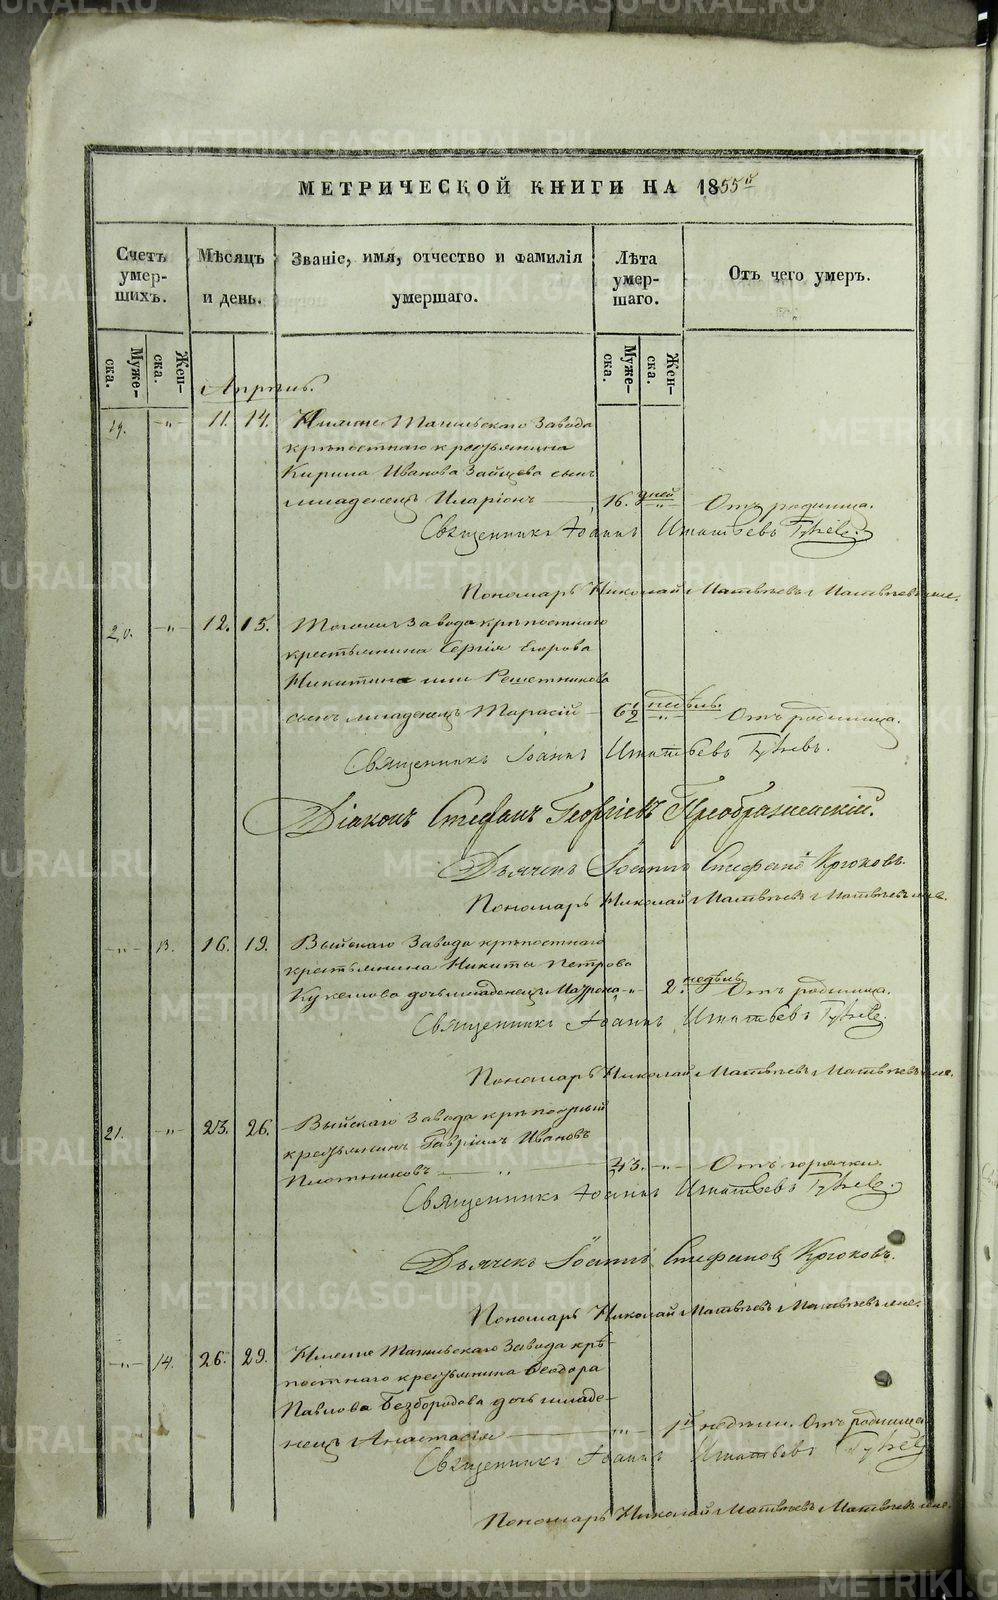 МЕТРИЧЕСКОЙ КНИГИ НА 1855й
Счетъ умер- шихъ.
Мѣсяцъ и день.
Званіе, имя, отчество и фамилія умершаго.
Лѣта умер- шаго.
Отъ чего умеръ.
Муже- ска.
Жен- ска.
Муже- ска.
Жен- ска.
Апрѣль.
19. -„- 11. 14. Нижне Тагильскаго Завода
крѣпостнаго крестьянина
Кирила Иванова Зайцева сынъ
младенецъ Иларіонъ 16. дней -„- Отъ родимца.
Священникъ Іоаннъ Игнатьевъ
Пономарь Николай Матвѣевъ Матвѣевъ
20. -„- 12. 15. Тогожъ Завода крѣпостнаго
крестьянина Сергія Егорова
Никитина или Решетникова
сынъ младенецъ Тарасій 6½ недѣль. -„- Отъ родимца.
Священникъ Іоаннъ Игнатьевъ
Діаконъ Стефанъ Георгіевъ Преображенскій.
Дьячекъ Іоаннъ Стефановъ Крюковъ.
Пономарь Николай Матвѣевъ Матвѣевъ
-„- 13. 16. 19. Выйскаго Завода крѣпостнаго
крестьянина Никиты Петрова
дочь младенецъ Мавра -„- 2. недѣль. Отъ родимца.
Священникъ Іоаннъ Игнатьевъ
Пономарь Николай Матвѣевъ Матвѣевъ
21. -„- 23. 26. Выйскаго Завода крѣпостный
крестьянинъ Гавріилъ Ивановъ
Плотниковъ „ 43. -„- Отъ горячки.
Священникъ Іоаннъ Игнатьевъ
Дьячекъ Іоаннъ Стефановъ Крюковъ.
Пономарь Николай Матвѣевъ Матвѣевъ
-„- 14. 26. 29. Нижне Тагильскаго Завода крѣ-
постнаго крестьянина Ѳеодора
Павлова Безбородова дочь младе-
нецъ Анастасія -„- 1й недѣли. Отъ родимца
Священникъ Іоаннъ Игнатьевъ
Пономарь Николай Матвѣевъ Матвѣевъ
METRIKI.GASO-URAL.RU